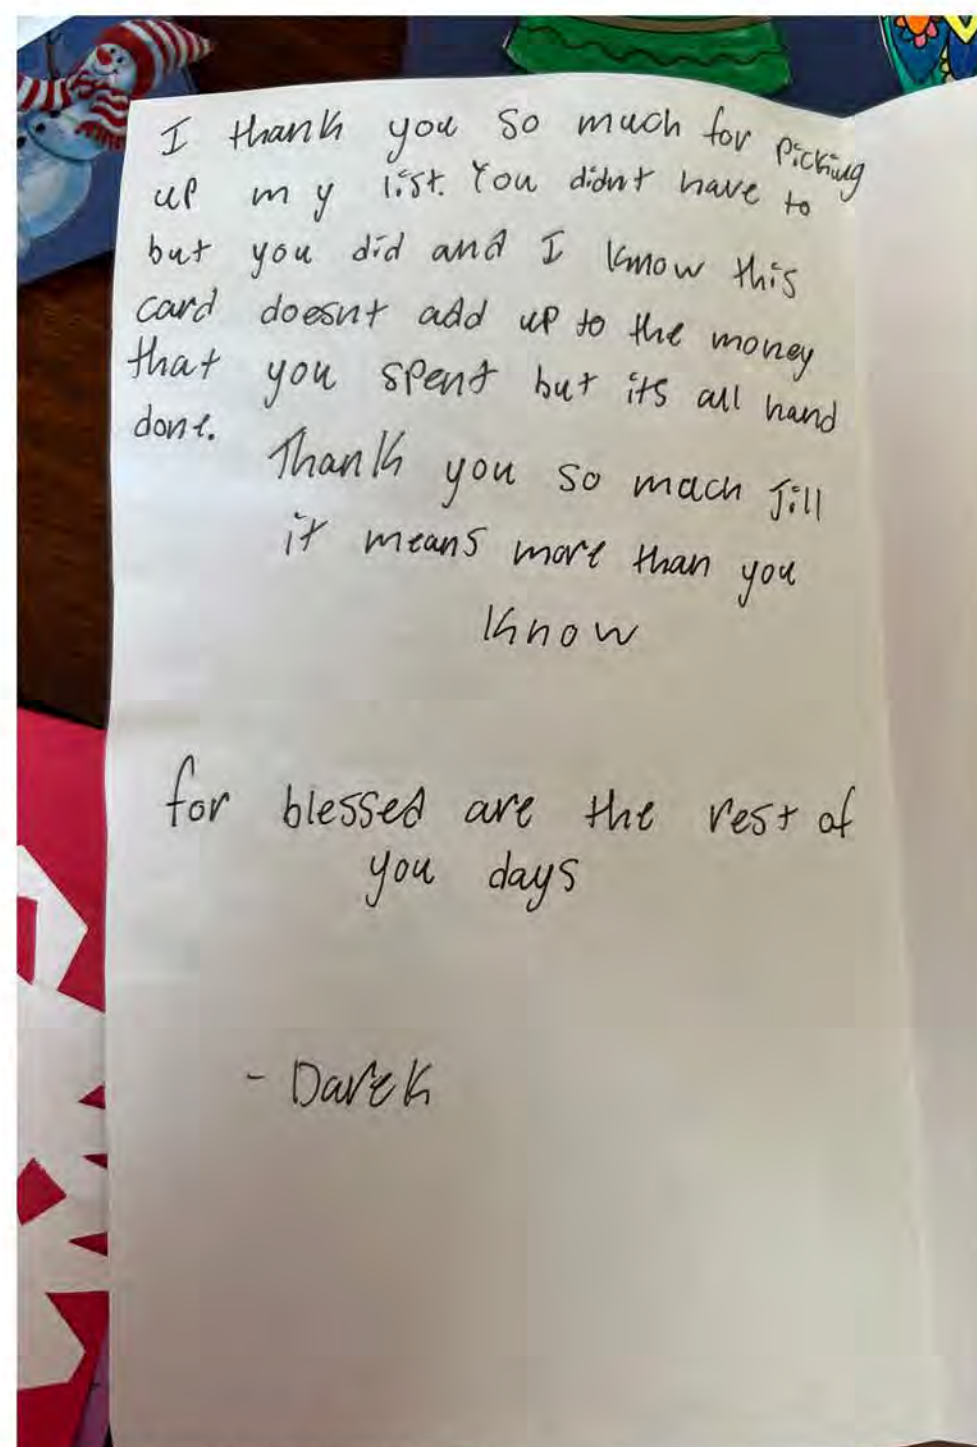 I thank you so much for picking
up my list. You didnt have to
but you did and I know this
card doesnt add up to the money
that you spent but its all hand
done.
Thank you so mach Jill
it means more than you
know
for blessed are the rest of
you days
- Darek